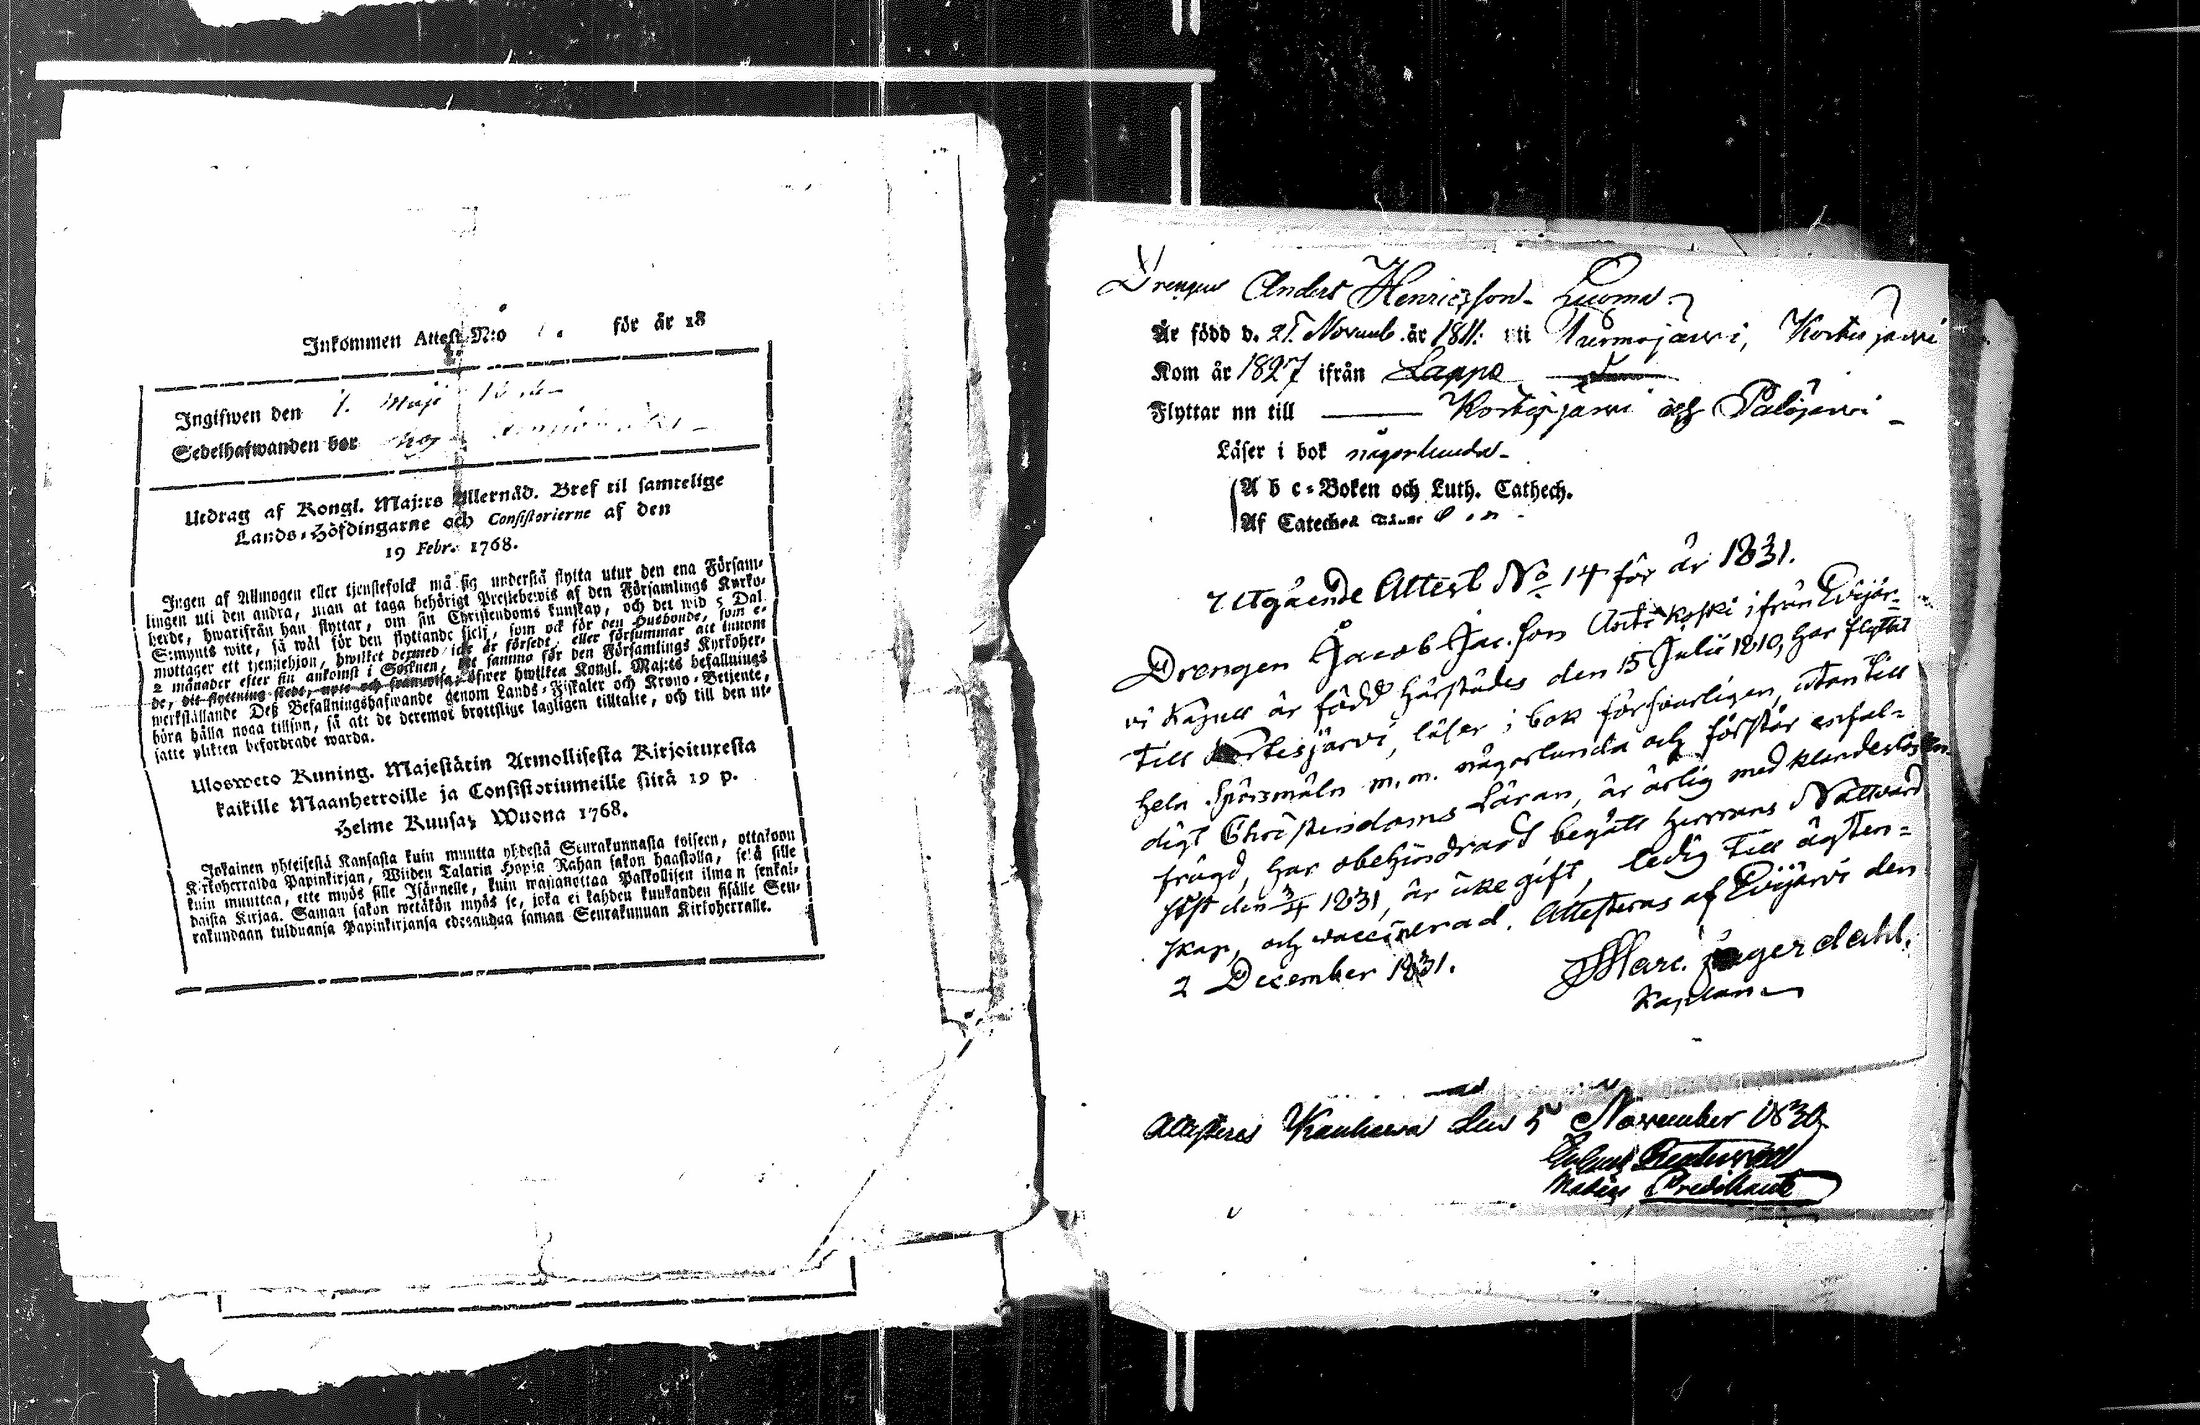 Inkommen Attest N:o för år 18
Ingifwen den 1. Maji
Sedelhafwanden bor hos
Utdrag af Kongl. Maj:ts Allernåd. Bref til samtelige
Lands-Höfdingarne och Consistorierne af den
19 Febr. 1768.
Ingen af Allmogen eller tjenstefolck må sig understå flytta utur den ena Försam-
lingen uti den andra, utan at taga behörigt Prestebewis af den Församlings Kyrko-
herde, hwarifrån han flyttar, om sin Christendoms kunskap, och det wid 5 Dal.
S:mynts wite, så wäl för den flyttande sjelf, som ock för den Husbonde, som e-
mottager ett tjenstehjon, hwilket dermed icke är försedt, eller försummar att innom
2 månader efter sin ankomst i Socknen, det samma för den Församlings Kyrkoher-
de, dit flyttning skedt, upte och framwisa, öfwer hwilken Kongl. Maj:ts befallnings
werkställande Deß Befallningshafwande genom Lands-Fiskaler och Krono-Betjente,
böra hålla noga tillsyn, så att de deremot brottslige lagligen tilltalte, och till den ut-
satte plikten befordrade warda.
Ulosweto Kuning. Majestätin Armollisesta Kirjoituxesta
kaikille Maanherroille ja Consistoriumeille siitä 19 p.
Helme Kuusa, Wuona 1768.
Jokainen yhteisestä Kansasta kuin muutta yhdestä Seurakunnasta toiseen, ottakoon
Kirkoherralda Papinkirjan, Wiiden Talarin Hopia Rahan sakon haastolla, sekä sille
kuin muuttaa, ette myös sille Isännelle, kuin wastanottaa Palkollisen ilman senkal-
daista Kirjaa. Saman sakon wetäkön myös se, joka ei kahden kuukauden sisälle Seu-
rakundaan tulduansa Papinkirjansa edesandaa saman Seurakunnan Kirkoherralle.
Drengen Anders Henricsson Luoma
Är född d. 21 Novemb. år 1811. uti Purmojärvi, Kortesjärvi
Kom år 1827 ifrån Lappo
Flyttar nu till Kortesjärvi och Palojärvi
Läser i bok någorlunda
A b c-Boken och Luth. Cathech.
Af Cateches
Utgående Attest No 14 för år 1831.
Drengen Jacob Jac.son Anttikoski ifrån Evijär-
vi Kapell är född härstädes den 15 Julii 1810, har flyttat
till Kortesjärvi, läser i bok försvarligen, utantill
hela Spörsmåln m.m. någorlunda och förstår enfal-
digt Christendoms Läran, är ärlig med klanderlös
frägd, har obehindrard begått Herrans Nattvard
sist den 3/4 1831, är icke gift, ledig till ägten-
skap, och vaccinerad. Attesteras af Evijärvi den
2 December 1831.
Marc. Jägerdahl.
Kaplan
Attesteras Kauhava den 5 November 1830
Predikant